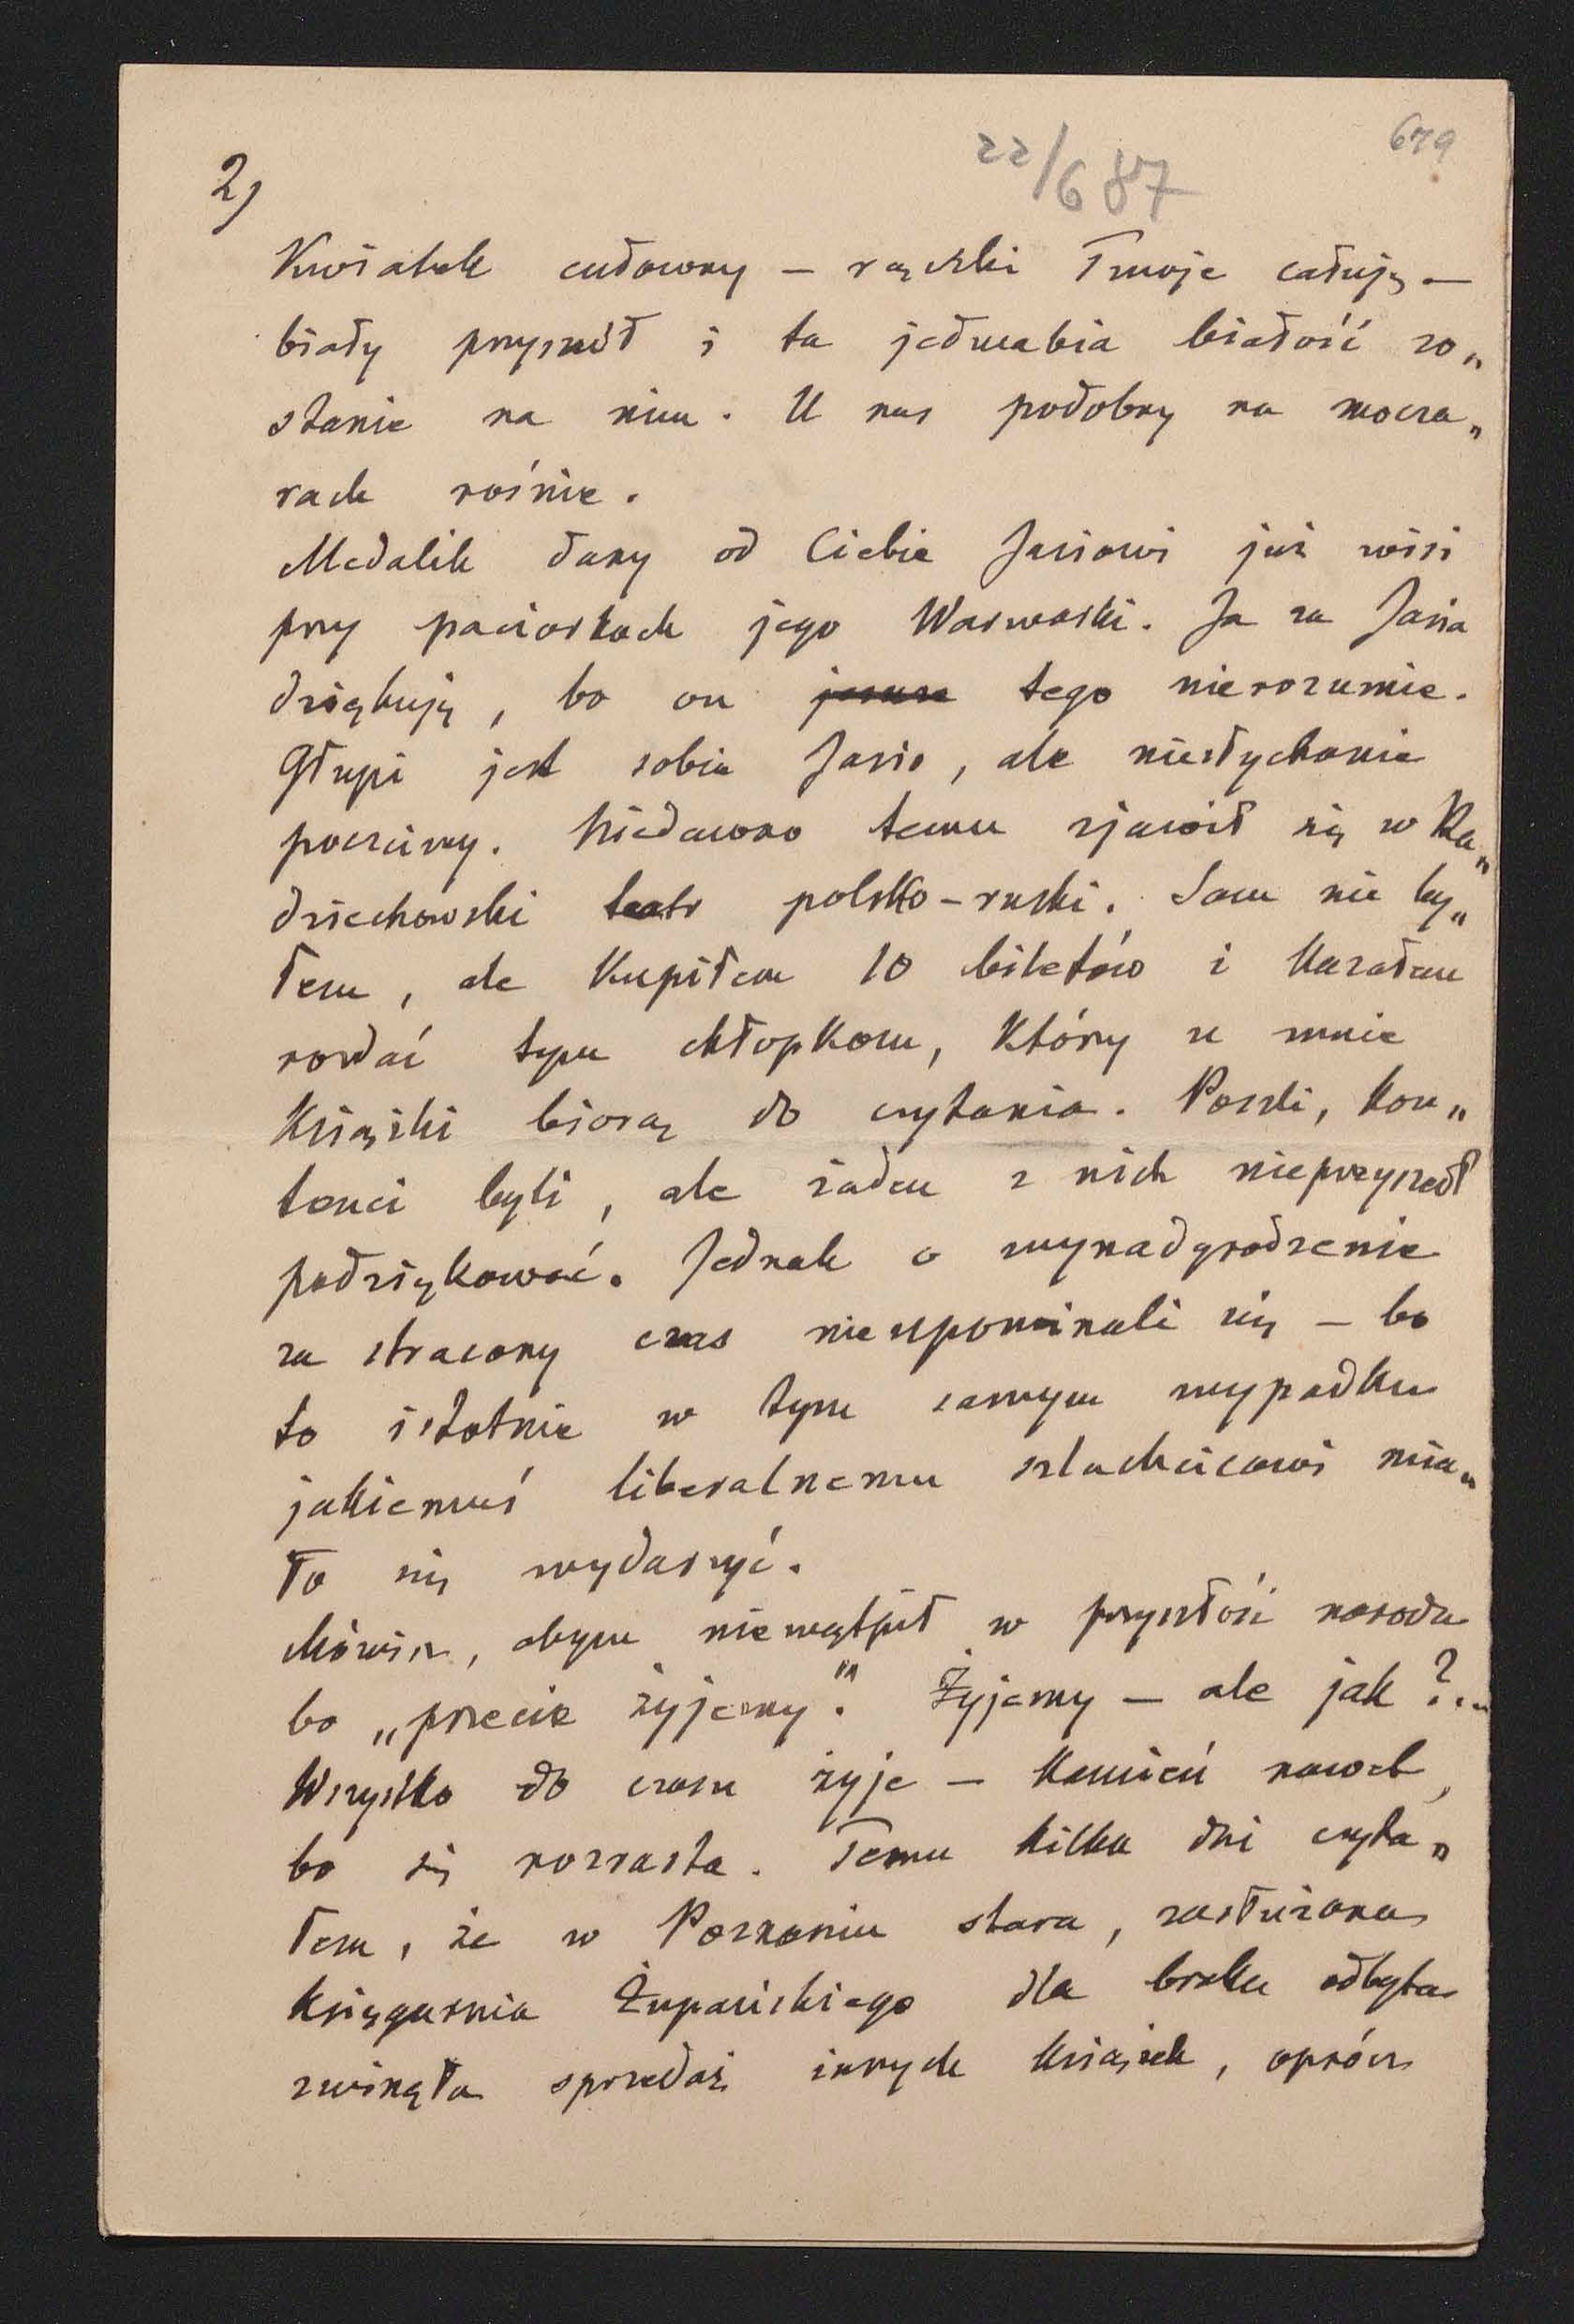 679
22/6 87
2)
Kwiatek cudowny — rączki Twoje całuję —
biały przyszedł i ta jedwabia białość zo„
stanie na nim. U nas podobny na mocza„
rach rośnie.
Medalik dany od Ciebie Jasiowi już wisi
przy paciorkach jego Warwaski. Ja za Jasia
dziękuję, bo on jeszcze tego nierozumie.
Głupi jest sobie Jasio, ale niesłychanie
poczciwy. Niedawno temu zjawił się w Ra„
dziechowski teatr polsko-ruski. Sam nie by„
łem, ale kupiłem 10 biletów i kazałem
rozdać tym chłopkom, którzy u mnie
książki biorą do czytania. Poszli, kon„
tenci byli, ale żaden z nich nieprzyszedł
podziękować. Jednak o wynadgrodzenie
za stracony czas nieupominali się — bo
to istotnie w tym samym wypadku
jakiemuś liberalnemu szlachcicowi mia„
ło się wydarzyć.
Mówisz, abym niewątpił w przyszłość narodu
bo „przecie żyjemy". Żyjemy — ale jak?..
Wszystko do czasu żyje — kamień nawet,
bo się rozrasta. Temu kilka dni czyta„
łem, że w Poznaniu stara, zasłużona
księgarnia Żupańskiego dla braku odbytu
zwinęła sprzedaż innych książek, oprócz